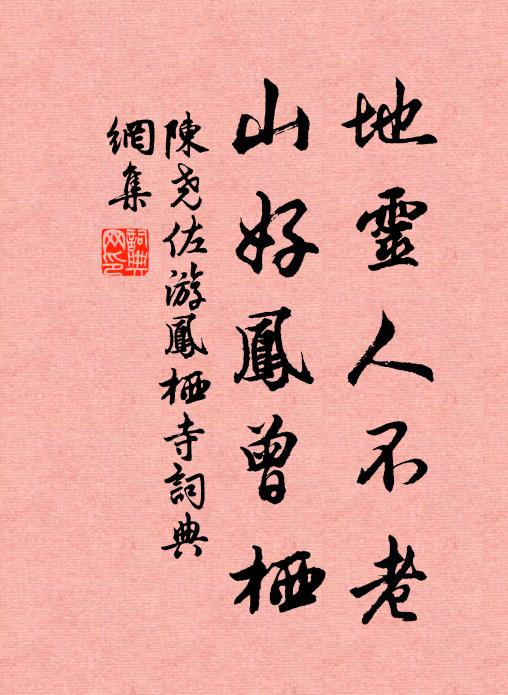 地靈人不老
山好鳳曾栖
陳堯佐游鳳栖寺詞典
網集
詞典網印